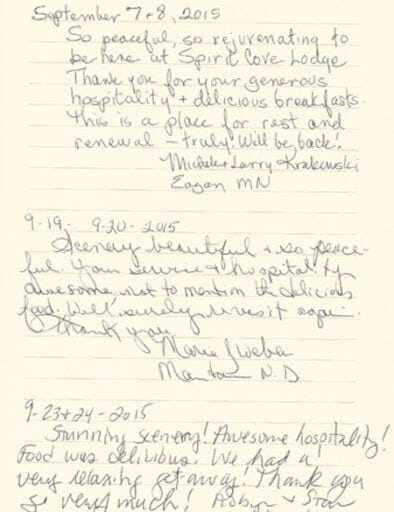 September 7+8, 2015
So peaceful, so rejuvenating to
be here at Spirit Cove Lodge
Thank you for your generous
hospitality + delicious breakfasts.
This is a place for rest and
renewal - truly! Will be back!
Michele + Larry Krakowski
Eagan MN
9-19- 9-20-2015
Scenery beautiful + so peace-
ful. Your service + hospitality
awesome not to mention the delicious
food. We'll surely revisit again.
Thank you
Marie Weber
N.D
9-23+24-2015
Stunning scenery! Awesome hospitality!
Food was delicious. We had a
very relaxing get away! Thank you
so very much! Robyn + Stan